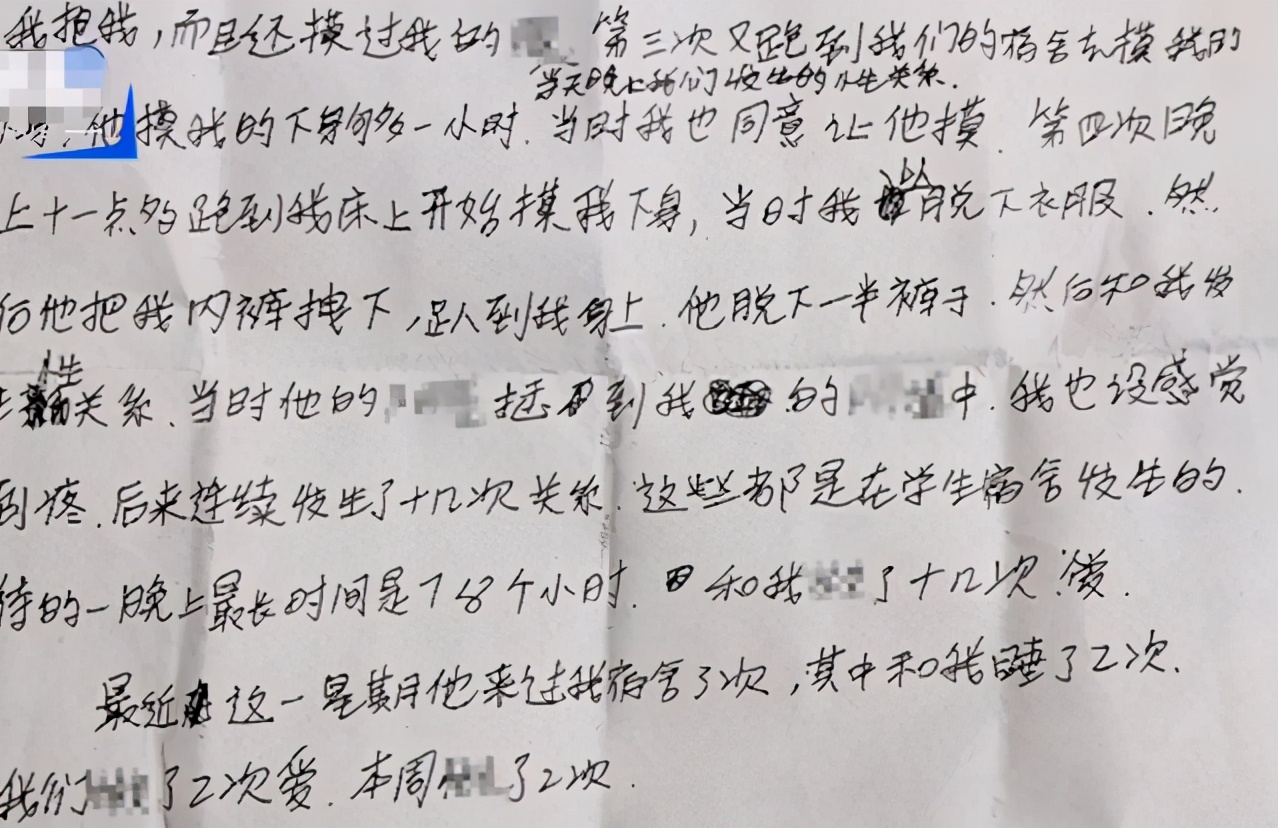 我抱我，而且还摸过我的 第三次又跑到我们的宿舍去摸我的
当天晚上我们发生的性关系.
他摸我的下身够多一小时.当时我也同意让他摸.第四次晚
上十一点多跑到我床上开始摸我下身，当时我 脱下衣服.然
后他把我内裤拽下，趴到我身上.他脱下一半裤子.然后和我发
生性关系.当时他的 到我 的 中.我也没感觉
到疼.后来连续发生了十几次关系.这些都是在学生宿舍发生的.
待的一晚上最长时间是7 8个小时. 和我 了十几次爱.
最近这一星期他来过我宿舍3次，其中和我睡了2次.
我们 了2次爱.本周 了2次.